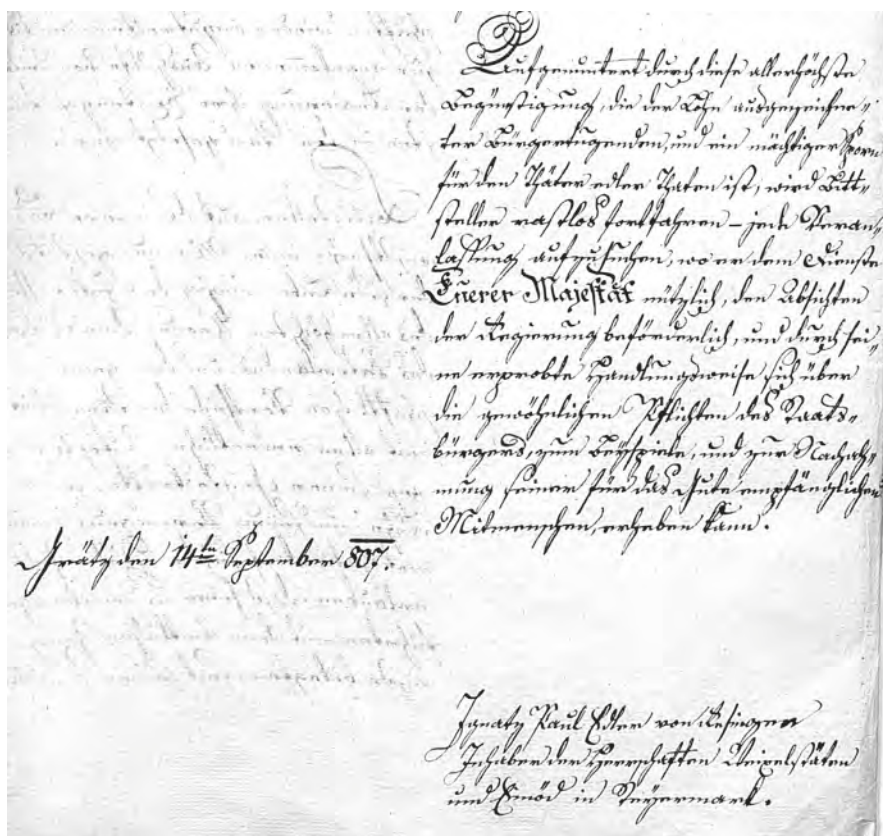 Aufgemuntert durch diese allerhöchste
Begünstigung, die der Lohn ausgezeichne„
ter Bürgertugenden, und ein mächtiger Sporn
für den Thäter edler Thaten ist, wird Bitt„
steller rastlos fortfahren – jede Veran„
lassung aufzusuchen, wo er dem Dienste
Euerer Majestät nützlich, den Absichten
der Regierung beförderlich, und durch sei„
ne erprobte Handlungsweise sich über
die gewöhnlichen Pflichten des Staats„
bürgers, zum Beyspiele, und zur Nachah„
mung seiner für das Gute empfänglichen
Mitmenschen, erheben kann.
Grätz den 14ten September 807.
Ignatz Paul Edler von
Inhaber der Herrschaften
und Einöd in Steyermark.